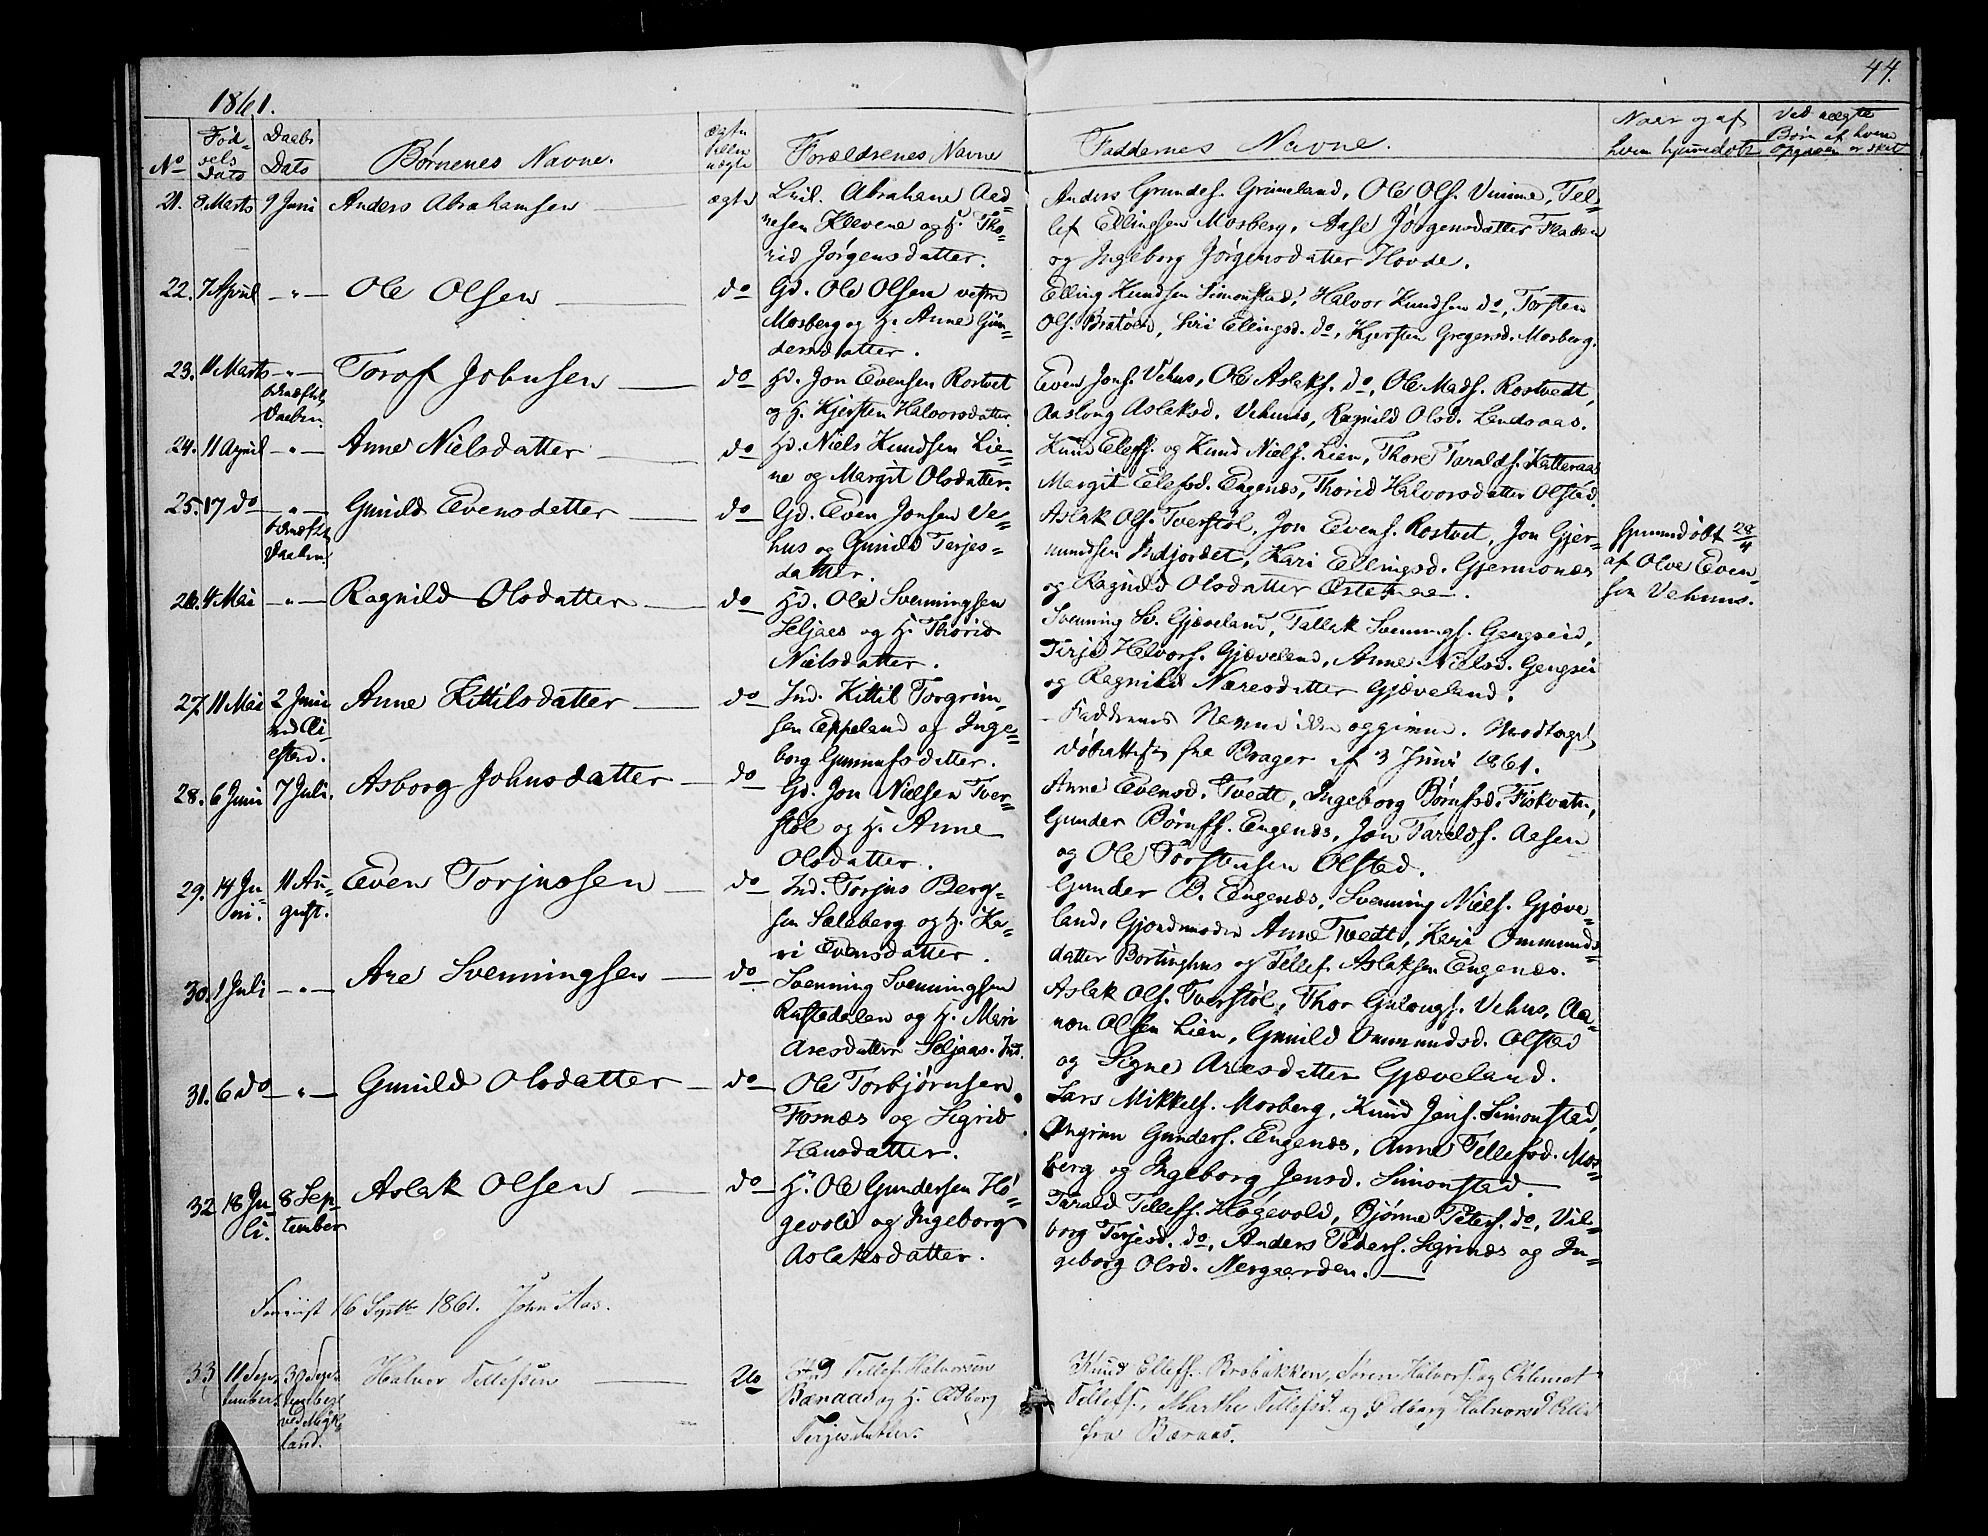 44.
1861.
No
Fød-
sels
Dato
Daabs
Dato
Børnenes Navne.
ægte
eller
uægte
Forældrenes Navne
Faddernes Navne.
Naar og af
hvem hjemmedøbt
Ved uægte
Børn af hvem
Opgaven er skeet
21. 8 Marts 9 Juni Anders Abrahamsen ægte
Abraham Aad-
nesen Klevene og H. Tho-
rid Jørgensdatter.
Anders Grundes. Grimeland, Ole Ols. Vimme, Tel-
lef Ellingsen Mosberg, Aase Jørgensdatter Fladen
og Ingeborg Jørgensdatter Hovde.
22. 7 April -"- Ole Olsen do
Gd. Ole Olsen vestre
Mosberg og H. Anne Gun-
dersdatter.
Elling Knudsen Simonstad, Halvor Knudsen do, Torsten
Ols. Bratøen, Siri Ellingsd. do, Kjersten Gregersd. Mosberg.
23. 11 Marts -"- Torof Johnsen do
Daaben.
Hd. Jon Evensen Rostvet
og H. Kjersten Halvorsdatter
Even Jons. Vehus, Ole Aslaks. do, Ole Mads. Rostvedt,
Aasloug Aslaksd. Vehuus, Ragnild Olsd. Lendsaas.
24. 11 April -"- Anne Nielsdatter do
Hd. Niels Knudsen Lie-
ne og Margit Olsdatter.
Knud Elefs. og Knud Niels. Lien, Thore Taralds. Katteraas
Margit Elefsd. Engenæs, Thorid Halvorsdatter Olstad.
25. 17 do -"- Gunild Evensdatter do
Daaben.
Gd. Even Jonsen Ve-
hus og Gunild Terjes-
datter.
Aslak Ols. Tverstøl, Jon Evens. Rostvet, Jon Gjer-
mundsen Midjordet, Kari Ellingsd. Gjermonæs
og Ragnild Olsdatter
Hjemmdøbt
af Olve Even-
sen Vehuus.
26. 4 Mai -"- Ragnild Olsdatter do
Hd. Ole Svenningsen
Seljaas og H. Thorid
Nielsdatter.
Svenning Sv. Gjæveland, Tallak Svennings. Gangsei,
Terje Halvors. Gjæveland, Anne Nielsd. Gangsei
og Ragnild Næresdatter Gjæveland.
27. 11 Mai 2 Juni Anne Kittilsdatter do
Ind. Kittil Torgrim-
sen Eppeland og Inge-
borg Gunnufsdatter.
Faddernes Navne ikke opgivne. Modtaget
Døbeattest fra Brager af 3 Juni 1861.
28. 6 Juni 7 Juli. Asborg Johnsdatter do
Gd. Jon Nielsen Tver-
støl og H. Anne
Olsdatter.
Anne Evensd. Tvedt, Ingeborg Børufsd. Fiskvatn,
Gunder Børufs. Engenæs, Jon Taralds. Aasen
og Ole Torstensen Olstad.
29. 14 Ju-
ni. 11 Au-
gust. Even Torjussen do
Ind. Torjus Berg-
sen Saleberg og H. Ka-
ri Evensdatter.
Gunder B. Engenæs, Svenning Niels. Gjæve-
land, Gjordemoder Anne Tvedt, Kari Ommunds-
datter Bortinghus og Tellef Aslaksen Engenæs.
30. 1 Juli -"- Are Svenningsen do
Svenning Svenningsen
Rustedalen og H. Mari
Aresdatter Seljaas. Ind.
Aslak Ols. Tverstøl, Thor Gulougs. Vehus, Aa-
non Olsen Lien, Gunild Ommundsd. Olstad
og Signe Aresdatter Gjæveland.
31. 6 do -"- Gunild Olsdatter do
Ole Torbjørnsen
Fosnæs og Sigrid
Hansdatter.
Lars Mikkels. Mosberg, Knud Jens. Simonstad,
Ougrim Gunders. Engenæs, Anne Tellefsd. Mos-
berg og Ingeborg Jensd. Simonstad.
32 18 Ju-
li. 8 Sep-
tember Aslak Olsen do
H. Ole Gundersen Hø-
gevold og Ingeborg
Aslaksdatter.
Tarald Tellefs. Høgevold, Bjørne Peters. do, Vil-
borg Terjesd. do, Anders Peders. Sigrinæs og In-
geborg Olsd. Nergaarden.
16 Septbr 1861. John Aas.
33 11 Sep-
tember 30 Sep-
tember
ved Myk-
land. Halvor Tellefsen do
Tellef Halvorsen
Baraas og H. Adborg
Terjesdatter.
Knud Ellefs. Brobakken, Søren Halvors. og Clement
Tellefs., Marthe Tellefsd. og Odborg Halvorsd alle
fra Baraas.